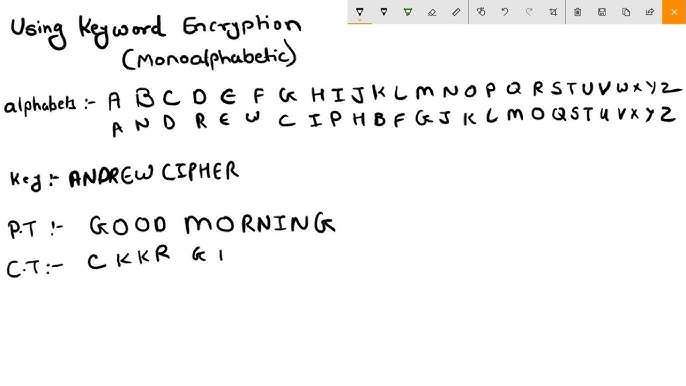 Using Keyword Encryption
(Monoalphabetic)
alphabets :- A B C D E F G H I J K L M N O P Q R S T U V W X Y Z
A N D R E W C I P H B F G J K L M O Q S T U V X Y Z
Key :- ANDREW CIPHER
P.T :- GOOD MORNING
C.T :- C K K R G I